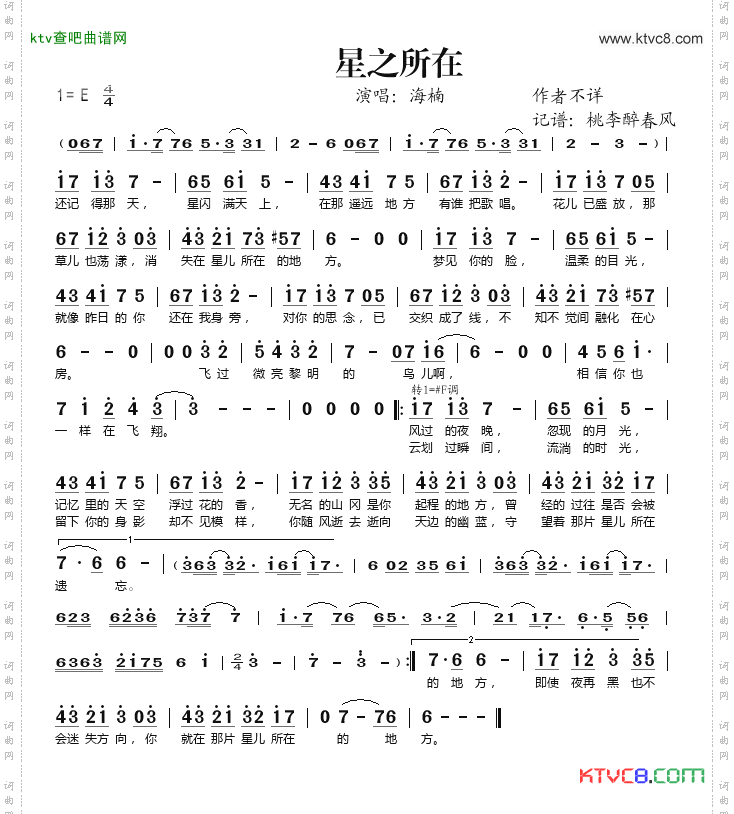 ktv查吧曲谱网
www.ktvc8.com
星之所在
1=E 4/4
演唱：海楠
作者不详
记谱：桃李醉春风
(067 | i·7 76 5·3 31 | 2 - 6 067 | i·7 76 5·3 31 | 2 - 3 - )|
17 13 7 - | 65 61 5 - | 43 41 7 5 | 67 13 2 - | 17 13 7 05 |
还记 得那 天， 星闪 满天 上， 在那 遥远 地方 有谁 把歌 唱。 花儿 已盛 放，那
67 12 3 03 | 43 21 73 #57 | 6 - 0 0 | 17 13 7 - | 65 61 5 - |
草儿 也荡 漾，消 失在 星儿 所在 的地 方。 梦见 你的 脸， 温柔 的目 光，
43 41 7 5 | 67 13 2 - | 17 13 7 05 | 67 12 3 03 | 43 21 73 #57 |
就像 昨日 的 你 还在 我身 旁， 对你 的思 念，已 交织 成了 线，不 知不 觉间 融化 在心
6 - - 0 | 0 0 0 32 | 5 43 32 | 7 - 07 16 | 6 - 0 0 | 4 5 6 1· |
房。 飞过 微亮 黎明 的 鸟儿啊， 相信 你 也
转1=#F调
7 1 2 4 3 | 3 - - - | 0 0 0 0 |: 17 13 7 - | 65 61 5 - |
一 样 在 飞 翔。 风过 的夜 晚， 忽现 的月 光，
云划 过瞬 间， 流淌 的时 光，
43 41 7 5 | 67 13 2 - | 17 12 33 35 | 43 41 3 03 | 43 21 32 17 |
记忆 里的 天 空 浮过 花的 香， 无名 的山 冈是 你 起程 的地 方，曾 经的 过往 是否 会被
留下 你的 身 影 却不 见模 样， 你随 风逝 去逝 向 天边 的幽 蓝，守 望着 那片 星儿 所在
1
7·6 6 - | (363 32· 161 17· | 6 02 35 61 | 363 32· 161 17· |
遗 忘。
623 6236 737 7 | i·7 76 65· 3·2 | 21 17· 6·5 56 |
2
6363 2175 6 i | 2/4 3 - | 7 - 3 - ):| 7·6 6 - | 17 12 3 35 |
的 地 方， 即使 夜再 黑 也不
43 21 3 03 | 43 21 32 17 | 0 7 - 76 | 6 - - - ||
会迷 失方 向，你 就在 那片 星儿 所在 的 地 方。
KTVC8.COM